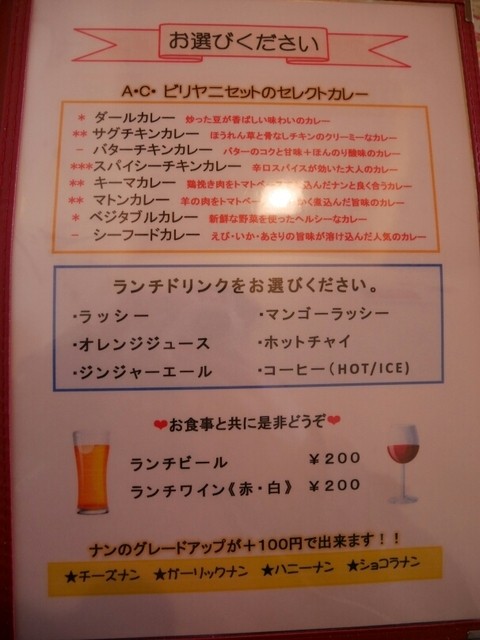 お選びください
A・C・ビリヤニセットのセレクトカレー
* ダールカレー 炒った豆が香ばしい味わいのカレー
** サグチキンカレー ほうれん草と骨なしチキンのクリーミーなカレー
- バターチキンカレー バターのコクと甘味+ほんのり酸味のカレー
***スパイシーチキンカレー 辛口スパイスが効いた大人のカレー
** キーマカレー 鶏挽き肉をトマトベース 込んだナンと良く合うカレー
** マトンカレー 羊の肉をトマトベー かく煮込んだ旨味のカレー
* ベジタブルカレー 新鮮な野菜を使ったヘルシーなカレー
- シーフードカレー えび・いか・あさりの旨味が溶け込んだ人気のカレー
ランチドリンクをお選びください。
・ラッシー ・マンゴーラッシー
・オレンジジュース ・ホットチャイ
・ジンジャーエール ・コーヒー(HOT/ICE)
❤お食事と共に是非どうぞ❤
ランチビール ¥200
ランチワイン《赤・白》 ¥200
ナンのグレードアップが+100円で出来ます!!
★チーズナン ★ガーリックナン ★ハニーナン ★ショコラナン